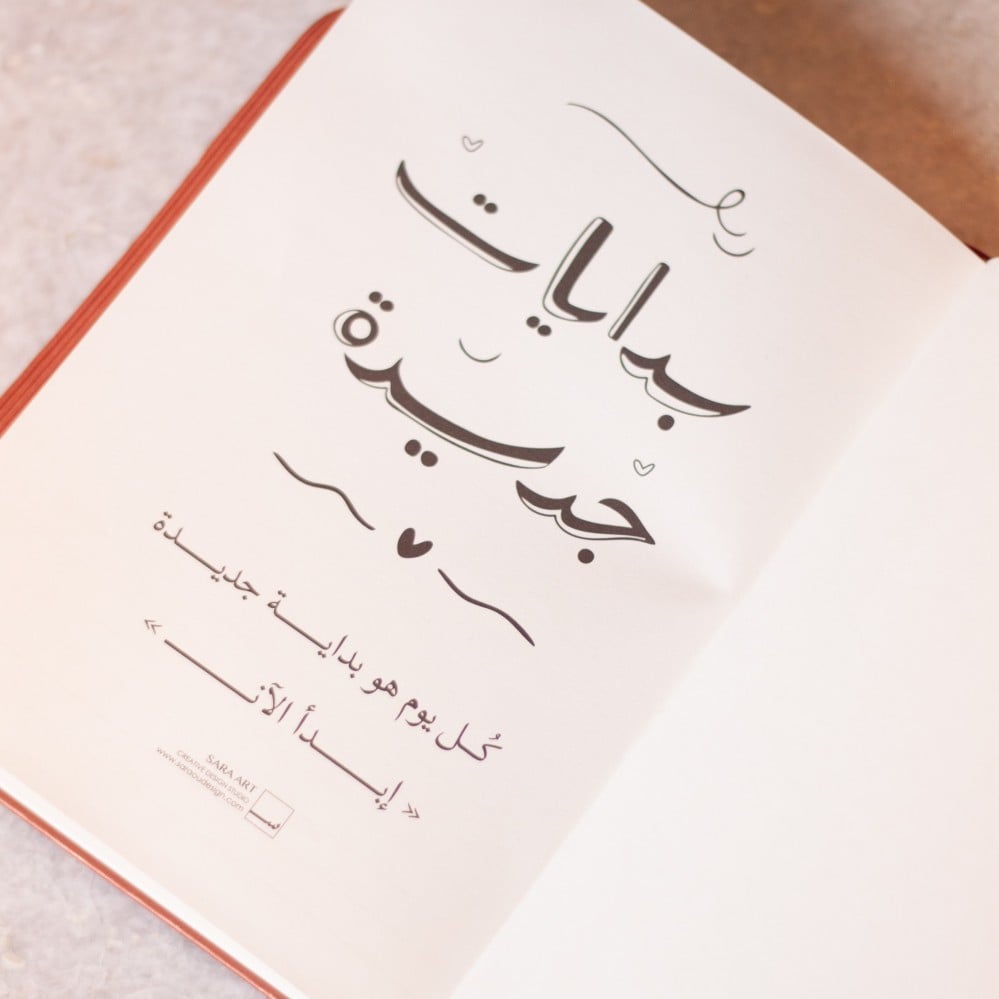 بدايات
جديدة
كُل يوم هو بداية جديدة
« إبدأ الآن »
SARA ART
CREATIVE DESIGN STUDIO
www.saraoudesign.com
سـ